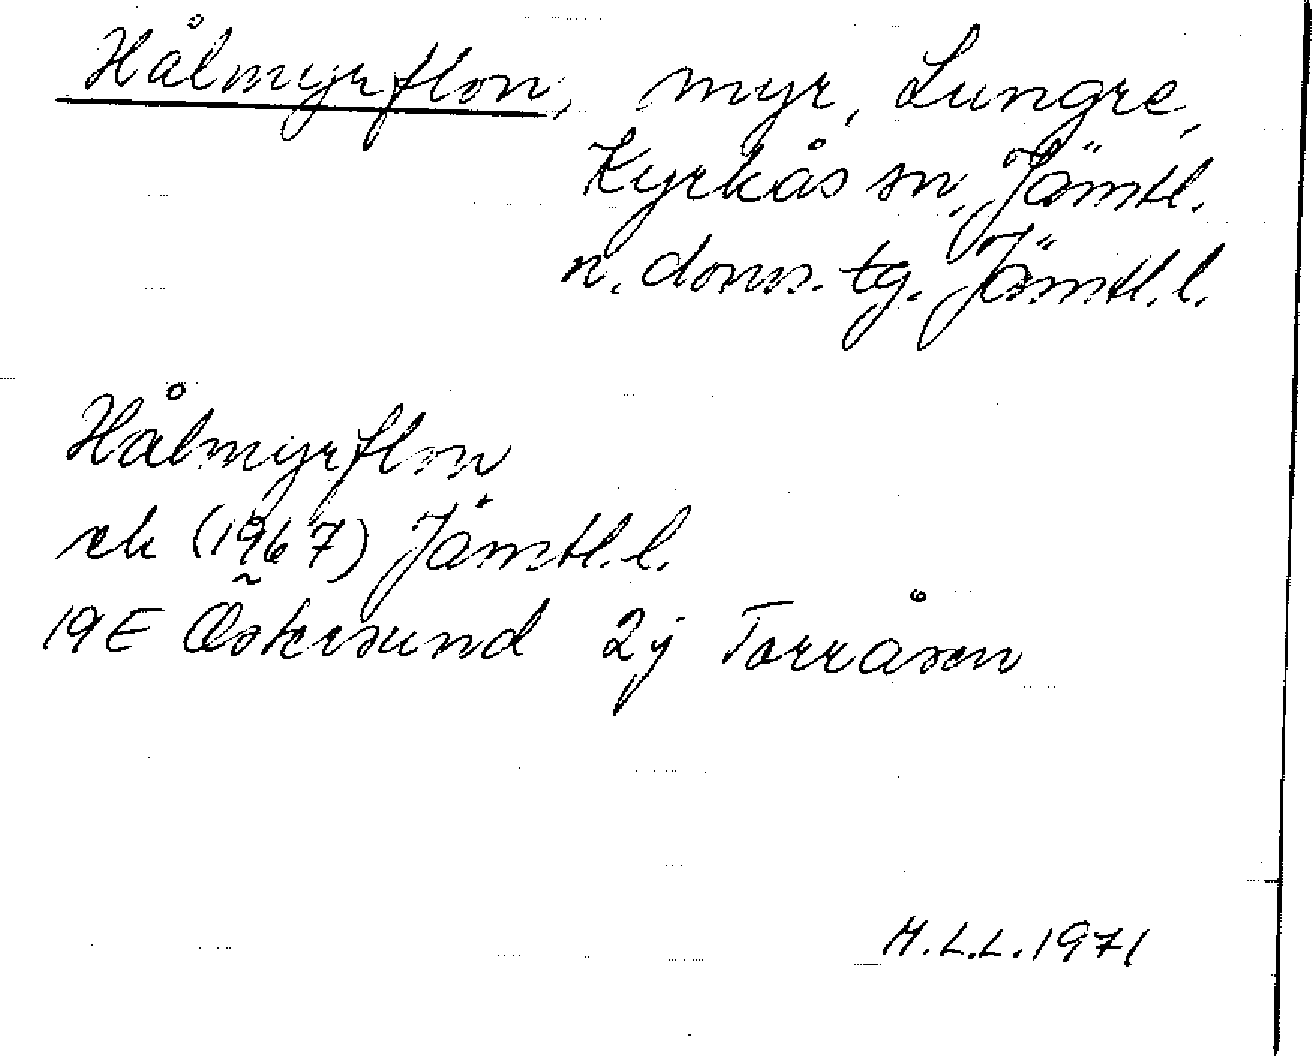 Hålmyrflon, myr, Lungre,
Kyrkås sn, Jämtl.
n. doms. tg. Jämtl. l.
Hålmyrflon
rek (1967) Jämtl. l.
19E Östersund 2j Torråsen
M.L.L. 1971